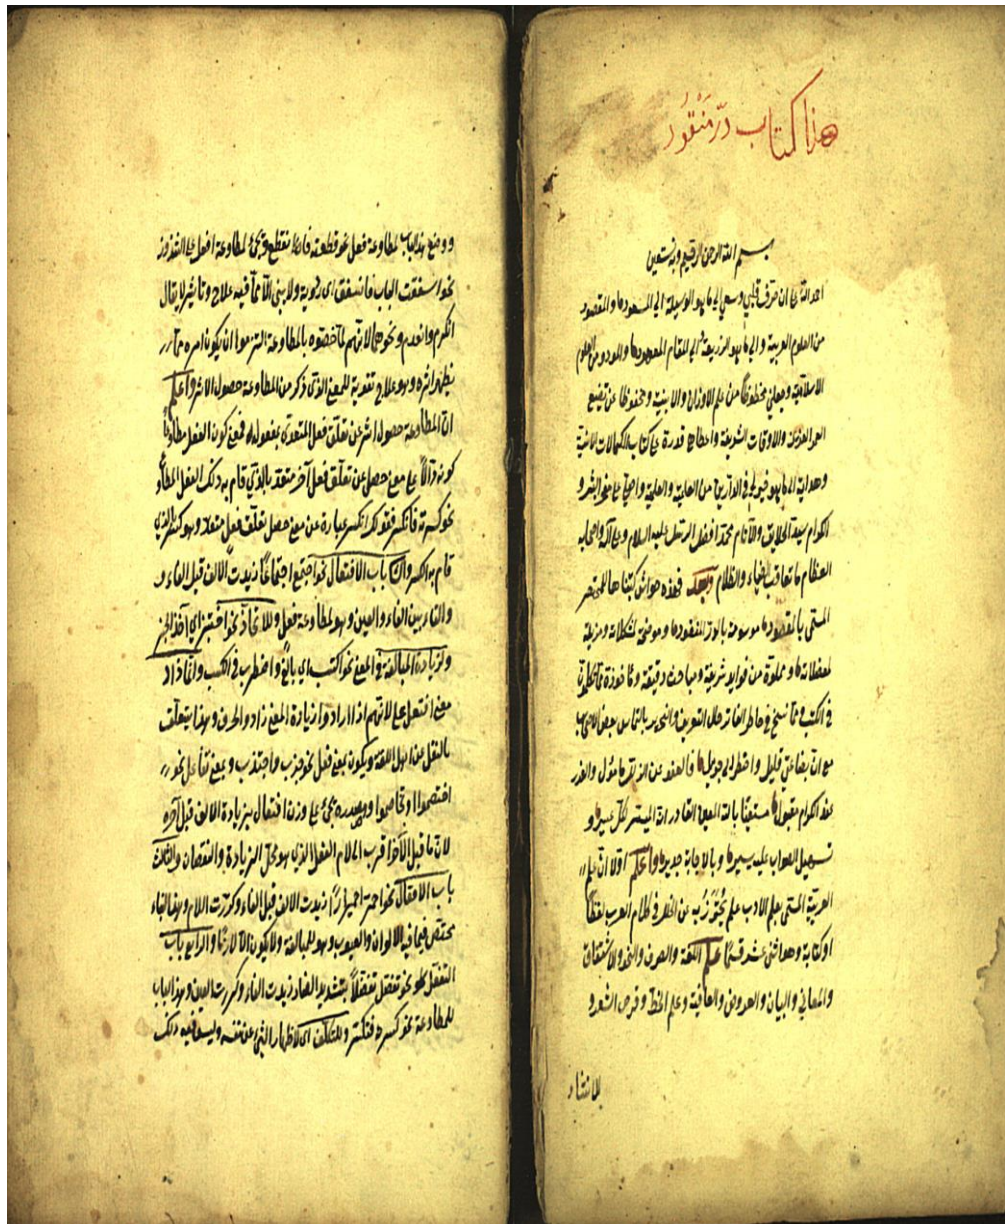 هذا كتاب درّ منقود
بسم الله الرحمن الرحيم وبه نستعين
احمد الله على ان صرف قلبي وسعي الى ما هو الوسيلة الى المسعود والمقصود
من العلوم العربية والى ما هو الذريعة الى المقام المعهود والمورود من العلوم
الاسلامية وجعلني محظوظا من علم الاوزان والابنية ومحفوظا عن تضييع
العمر العزيز والاوقات الشريفة واعطاني قدرة على كتاب الكمالات الانسية
وهداية الى ما هو خير لي في الدارين من العلمية والعملية واصلي على خير البشر و
الكرام سيد الخلايق والانام محمد افضل الرسل عليه السلام وعلى آله واصحابه
العظام ما تعاقب الضياء والظلام وبعد فهذه حواش كتبناها للمختصر
المسمى بالمقصود موسومة بالدر المنقود وموضحة لمشكلاته ومزيلة
لمعضلاته ومملوة من فوايد شريفة ومباحث دقيقة وماخوذة مما
في الكتب ومما سنح في خاطر الفاتر حال التعريف والتحرير بالتماس بعض الاصحاب
مع ان بضاعتي قليل واضطرابي جزيل فالعفو عن الزلة مأمول والعذر
عند الكرام مقبول مستعينا بالله المعين القادر انه الميسر لكل عسير و
تسهيل الصواب عليه يسير وبالاجابة جدير واعلم اولا ان علم
العربية المسمى بعلم الادب علم يحترز به عن الخلل في كلام العرب لفظا
او كتابة وهو اثنى عشر قسما علم اللغة والصرف والنحو والاشتقاق
والمعاني والبيان والعروض والقافية وعلم الخط وقرض الشعر و
الانشاء
ووضع هذا الباب لمطاوعة فعل نحو قطعته فانقطع ويجئ لمطاوعة افعل على الشذوذ
نحو اسفقت الباب فانسفق اى رددته ولا يبنى الا مما فيه علاج وتاثير لا يقال
انكرم وانعدم ونحوها لانهم لما خصوه بالمطاوعة التزموا ان يكون امره مما
يظهر اثره وهو علاج تقوية للمعنى الذى ذكر من المطاوعة حصول الاثر واعلم
ان المطاوعة حصول اثر عن تعلق فعل المتعدى بمفعوله فمعنى كون الفعل مطاوعا
كونه دالا على معنى حصل عن تعلق فعل آخر متعد بالذي قام به ذلك الفعل المطاوع
نحو كسرته فانكسر فقولك انكسر عبارة عن معنى حصل تعلق فعل متعد وهو كسر الذي
قام به الكسر والثاني باب الافتعال نحو اجتمع اجتماعا زيدت الالف قبل الفاء و
والتاء بين الفاء والعين وهو لمطاوعة فعل وللاتخاذ نحو اختبز اي اخذ الخبز
ولزيادة المبالغة في المعنى نحو اكتسب اي بالغ واضطرب في الكسب وانما زاد
معنى افتعل على لانهم اذا ارادوا زيادة المعنى زادوا الحرف وهذا يتعلق
بالنقل من اهل اللغة ويكون بمعنى فعل نحو جذب واجتذب وبمعنى تفاعل نحو
اختصموا وتخاصموا ومصدره يجئ على وزن افتعال بزيادة الالف قبل آخره
لان ما قبل الآخر اقرب الى لام الفعل الذي هو محل الزيادة والنقصان والثالث
باب الافعلال نحو احمر احمرارا زيدت الالف قبل الفاء وكررت اللام وهذا البناء
مختص فيما فيه الالوان والعيوب وهو للمبالغة ولا يكون الا لازما والرابع باب
التفعل نحو تفضل تفضلا بتشديد الضاد زيدت التاء وكررت العين وهذا الباب
للمطاوعة نحو كسره فتكسر وللتكلف اى لاظهار الشئ عن نفسه وليس فيه ذلك